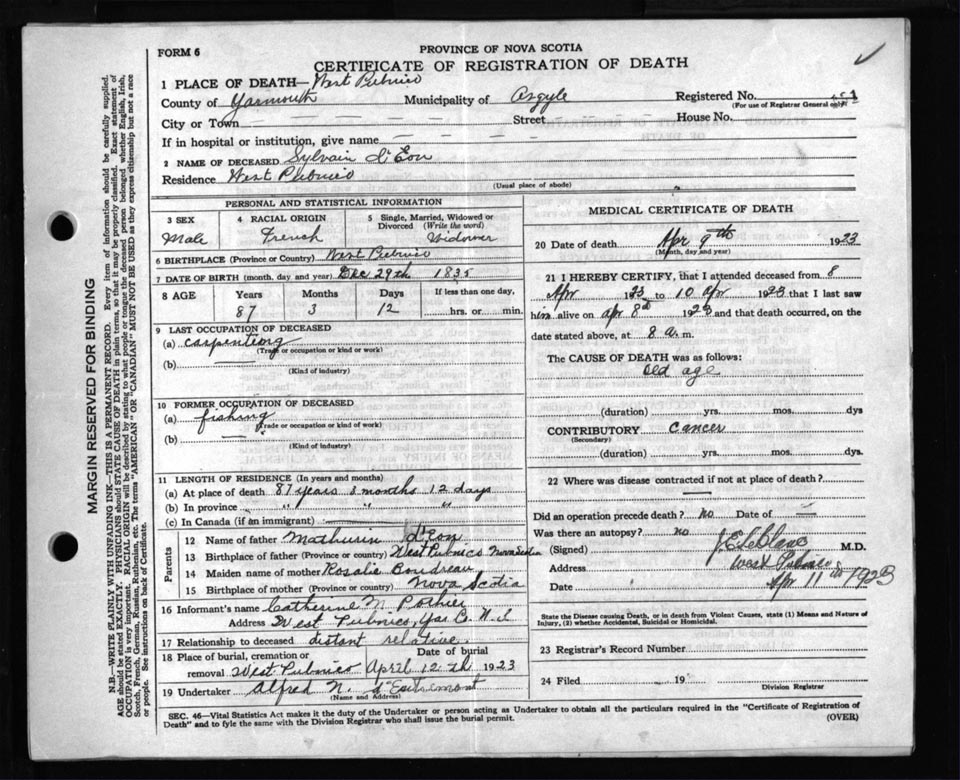 FORM 6
PROVINCE OF NOVA SCOTIA
CERTIFICATE OF REGISTRATION OF DEATH
1 PLACE OF DEATH—West Pubnico
County of Yarmouth Municipality of Argyle Registered No.
(For use of Registrar General only)
City or Town — — — — — — Street — — — — House No.
If in hospital or institution, give name — — — — —
2 NAME OF DECEASED Sylvain d'Eon
Residence West Pubnico
(Usual place of abode)
PERSONAL AND STATISTICAL INFORMATION
3 SEX 4 RACIAL ORIGIN 5 Single, Married, Widowed or Divorced (Write the word)
Male French Widower
6 BIRTHPLACE (Province or Country) West Pubnico
7 DATE OF BIRTH (month, day, and year) Dec 29th 1835
8 AGE Years Months Days If less than one day,
87 3 12 hrs. or min.
9 LAST OCCUPATION OF DECEASED
(a) carpentiong
(Trade or occupation or kind or work)
(b)
(Kind of industry)
10 FORMER OCCUPATION OF DECEASED
(a) fishing
(Trade or occupation or kind of work)
(b) —
(Kind of industry)
11 LENGTH OF RESIDENCE (In years and months)
(a) At place of death 87 years 3 months 12 days
(b) In province " " "
(c) In Canada (if an immigrant) —
Parents
12 Name of father Mathurin d'Eon
13 Birthplace of father (Province or country) West Pubnico Nova Scotia
14 Maiden name of mother Rosalie Boudreau
15 Birthplace of mother (Province or country) Nova Scotia
16 Informant's name Catherine M. Pothier
Address West Pubnico, Yar Co. N.S
17 Relationship to deceased distant relative
18 Place of burial, cremation or removal West Pubnico Date of burial April 12th 1923
19 Undertaker Alfred N. d'Entremont
(Name and Address)
MEDICAL CERTIFICATE OF DEATH
20 Date of death Apr 9th 1923
(Month, day and year)
21 I HEREBY CERTIFY, that I attended deceased from 8
Apr 1923 to 10 Apr 1923 that I last saw
him alive on Apr 8th 1923 and that death occurred, on
date stated above, at 8 a. m.
The CAUSE OF DEATH was as follows:
Old age
(duration) yrs. mos. dys
CONTRIBUTORY Cancer
(Secondary)
(duration) yrs. mos. dys
22 Where was disease contracted if not at place of death?
Did an operation precede death? No Date of —
Was there an autopsy? no
(Signed) J.E. LeBlanc M.D.
Address West Pubnico
Date Apr 11th 1923
State the Disease causing Death, or in death from Violent Causes, state (1) Means and Nature of
Injury, (2) whether Accidental, Suicidal or Homicidal.
23 Registrar's Record Number
24 Filed 19
Division Registrar
SEC. 46—Vital Statistics Act makes it the duty of the Undertaker or person acting as Undertaker to obtain all the particulars required in the "Certificate of Registration of
Death" and to fyle the same with the Division Registrar who shall issue the burial permit. (OVER)
MARGIN RESERVED FOR BINDING
N.B.—WRITE PLAINLY WITH UNFADING INK—THIS IS A PERMANENT RECORD. Every item of information should be carefully supplied.
AGE should be stated EXACTLY. PHYSICIANS should STATE CAUSE OF DEATH in plain terms, so that it may be properly classified. Exact statement of
OCCUPATION is very important. RACIAL ORIGIN will be described by stating to what people or tongue the deceased person belonged whether English, Irish,
Scotch, French, German, Russian, Ruthenian, etc. The terms "AMERICAN" OR "CANADIAN" MUST NOT BE USED as they express citizenship but not a race
or people. See instructions on back of Certificate.